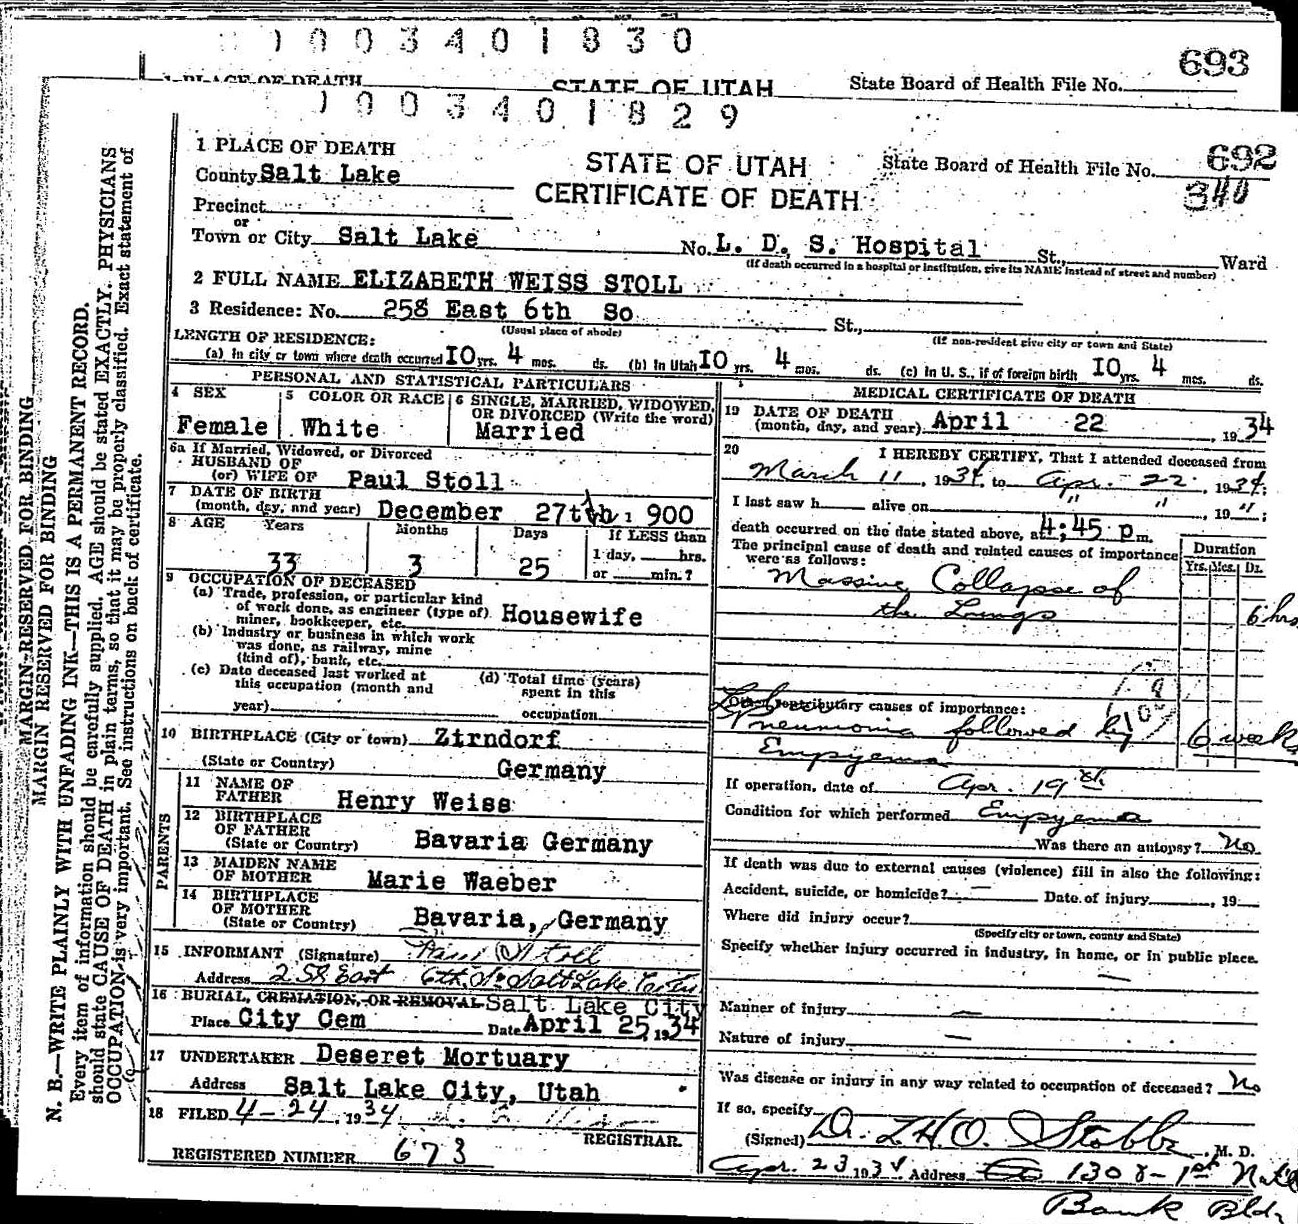 1003401830
693
1 PLACE OF DEATH STATE OF UTAH State Board of Health File No.
1003401829
692
1 PLACE OF DEATH STATE OF UTAH State Board of Health File No.
340
County Salt Lake CERTIFICATE OF DEATH
Precinct
or
Town or City Salt Lake No. L. D. S. Hospital St., Ward
(If death occurred in a hospital or institution, give its NAME instead of street and number)
2 FULL NAME ELIZABETH WEISS STOLL
3 Residence: No. 258 East 6th So St.,
(Usual place of abode) (If non-resident give city or town and State)
LENGTH OF RESIDENCE:
(a) In city or town where death occurred 10 yrs. 4 mos. ds. (b) In Utah 10 yrs. 4 mos. ds. (c) In U. S., if of foreign birth 10 yrs. 4 mos. ds.
PERSONAL AND STATISTICAL PARTICULARS
4 SEX
Female
5 COLOR OR RACE
White
6 SINGLE, MARRIED, WIDOWED, OR DIVORCED (Write the word)
Married
6a If Married, Widowed, or Divorced
HUSBAND OF
(or) WIFE OF Paul Stoll
7 DATE OF BIRTH
(month, day, and year) December 27th 1900
8 AGE Years Months Days If LESS than
33 3 25 1 day, hrs.
or min.?
9 OCCUPATION OF DECEASED
(a) Trade, profession, or particular kind
of work done, as engineer (type of)
miner, bookkeeper, etc. Housewife
(b) Industry or business in which work
was done, as railway, mine
(kind of), bank, etc.
(c) Date deceased last worked at
this occupation (month and
year)
(d) Total time (years)
spent in this
occupation
10 BIRTHPLACE (City or town) Zirndorf
(State or Country) Germany
PARENTS
11 NAME OF
FATHER Henry Weiss
12 BIRTHPLACE
OF FATHER
(State or Country) Bavaria Germany
13 MAIDEN NAME
OF MOTHER Marie Waeber
14 BIRTHPLACE
OF MOTHER
(State or Country) Bavaria, Germany
15 INFORMANT (Signature) Stoll
Address 258 East 6th So Salt Lake City
16 BURIAL, CREMATION, OR REMOVAL Salt Lake City
Place City Cem Date April 25, 1934
17 UNDERTAKER Deseret Mortuary
Address Salt Lake City, Utah
18 FILED 4-24, 1934
REGISTRAR.
REGISTERED NUMBER 673
MEDICAL CERTIFICATE OF DEATH
19 DATE OF DEATH
(month, day, and year) April 22, 1934
20 I HEREBY CERTIFY, That I attended deceased from
March 11, 1934, to Apr. 22, 1934;
I last saw h alive on " ", 19 ";
death occurred on the date stated above, at 4:45 p m.
The principal cause of death and related causes of importance
were as follows:
Duration
Yrs. Mos. Ds.
Massive Collapse of
the Lungs 6 hrs
Lobar
Contributory causes of importance:
Pneumonia followed by 6 weeks
Empyema
If operation, date of Apr. 19th
Condition for which performed Empyema
Was there an autopsy? No
If death was due to external causes (violence) fill in also the following:
Accident, suicide, or homicide? — Date of injury, 19
Where did injury occur?
(Specify city or town, county and State)
Specify whether injury occurred in industry, in home, or in public place.
—
Manner of injury —
Nature of injury —
Was disease or injury in any way related to occupation of deceased? No
If so, specify
(Signed) Dr. L.H.O. Stobbe, M. D.
Apr. 23 1934 Address 1308-1st Nat'l
Bank Bldg
MARGIN RESERVED FOR BINDING
MARGIN RESERVED FOR BINDING
N. B.—WRITE PLAINLY WITH UNFADING INK—THIS IS A PERMANENT RECORD.
Every item of information should be carefully supplied. AGE should be stated EXACTLY. PHYSICIANS
should state CAUSE OF DEATH in plain terms, so that it may be properly classified. Exact statement of
OCCUPATION is very important. See instructions on back of certificate.